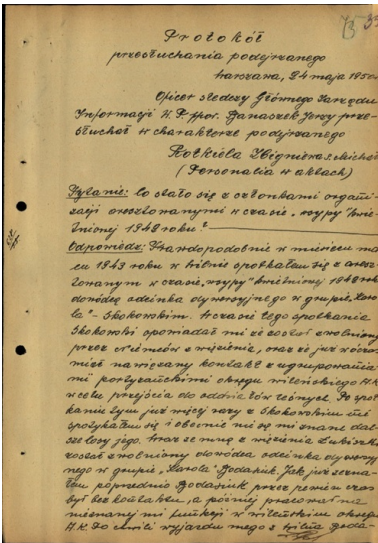 75 33
Protokół
przesłuchania podejrzanego
Warszawa, 24 maja 1950
Oficer śledczy Głównego Zarządu
Informacji W.P. ppor. Banaszek Jerzy prze-
słuchał w charakterze podejrzanego
Zbigniewa s. Michała
(Personalia w aktach)
Pytanie: Co stało się z członkami organi-
zacji aresztowanymi w czasie "wsypy" kwie-
tniowej 1942 roku?
Odpowiedź: Prawdopodobnie w miesiącu ma-
1943 roku w Wilnie spotkałem się z areszt-
towanym w czasie "wsypy" kwietniowej 1942 rok
dowódcą odcinka dywersyjnego w grupie "Karo-
la" - Skokowskim. W czasie tego spotkania
Skokowski opowiadał mi że został zwolniony
przez Niemców z więzienia, oraz że już wówczas
miał nawiązany kontakt z ugrupowania-
mi partyzanckimi okręgu wileńskiego A.K.
w celu przejścia do oddziałów leśnych. Po spot-
kaniu tym już więcej razy z Skokowskim nie
spotykałem się i obecnie nie są mi znane dal-
sze losy jego. Wraz ze mną z więzienia Łukiszki
został zwolniony dowódca odcinka dywersyj-
nego w grupie "Karola" Bodasiuk. Jak już zezna-
łem poprzednio Bodasiuk przez pewien czas
był bez kontaktu, a później pracował na
nieznanej mi funkcji w wileńskim okręgu
A.K. Do chwili wyjazdu mego z Wilna Boda-